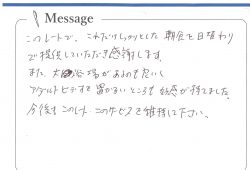 Message
このレートで、これだけしっかりとした朝食を日替わり
で提供していただき感謝します。
また、大浴場があるのも良いし
アダルトビデオを置かないところも好感が持てました。
今後もこのレート、このサービスを維持して下さい。